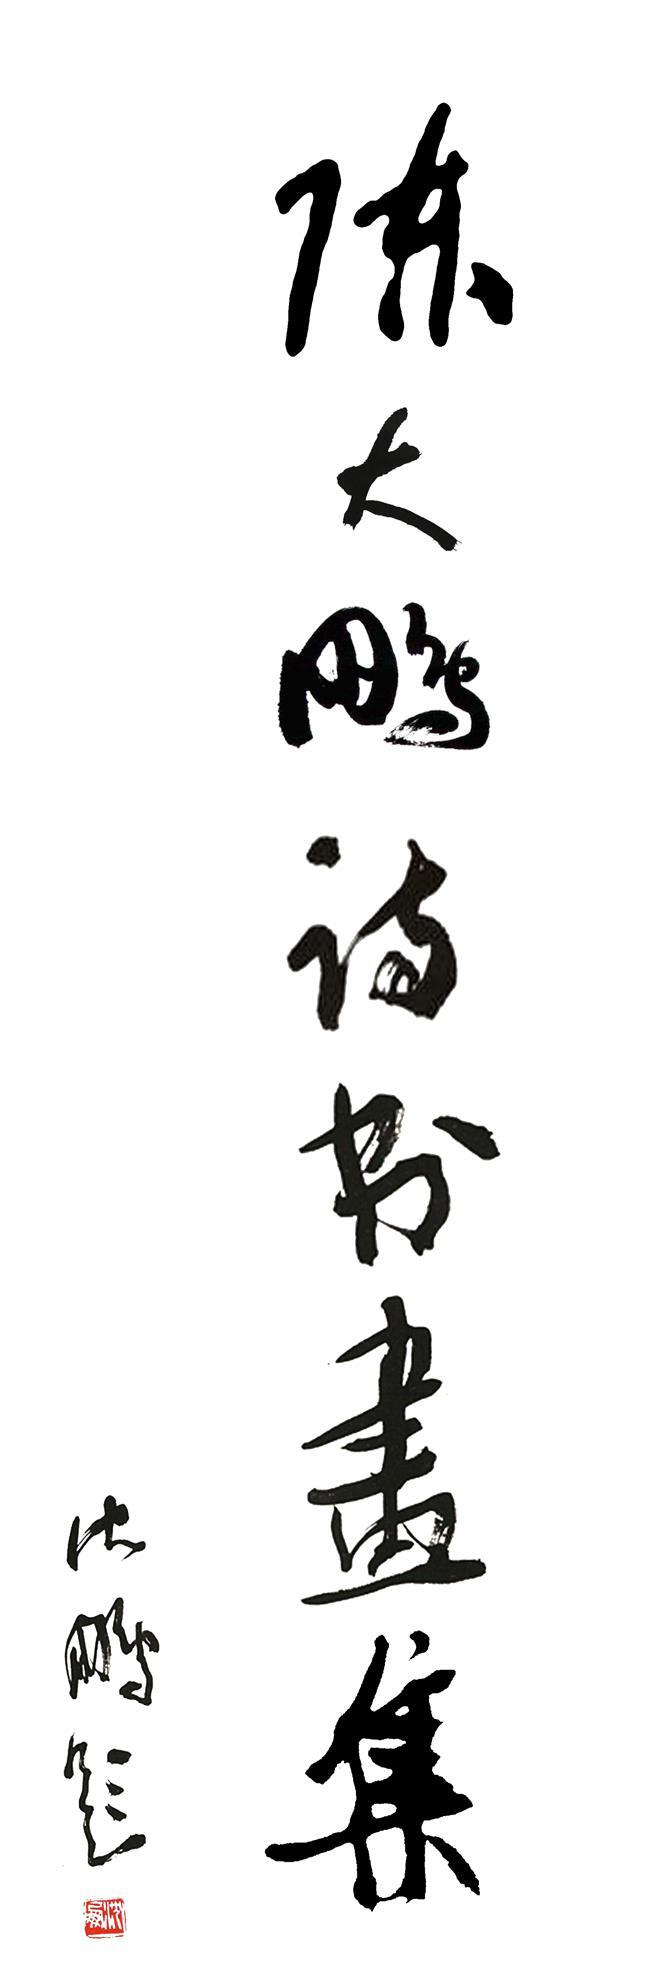 陈大鹏诗书畫集
沈鹏题